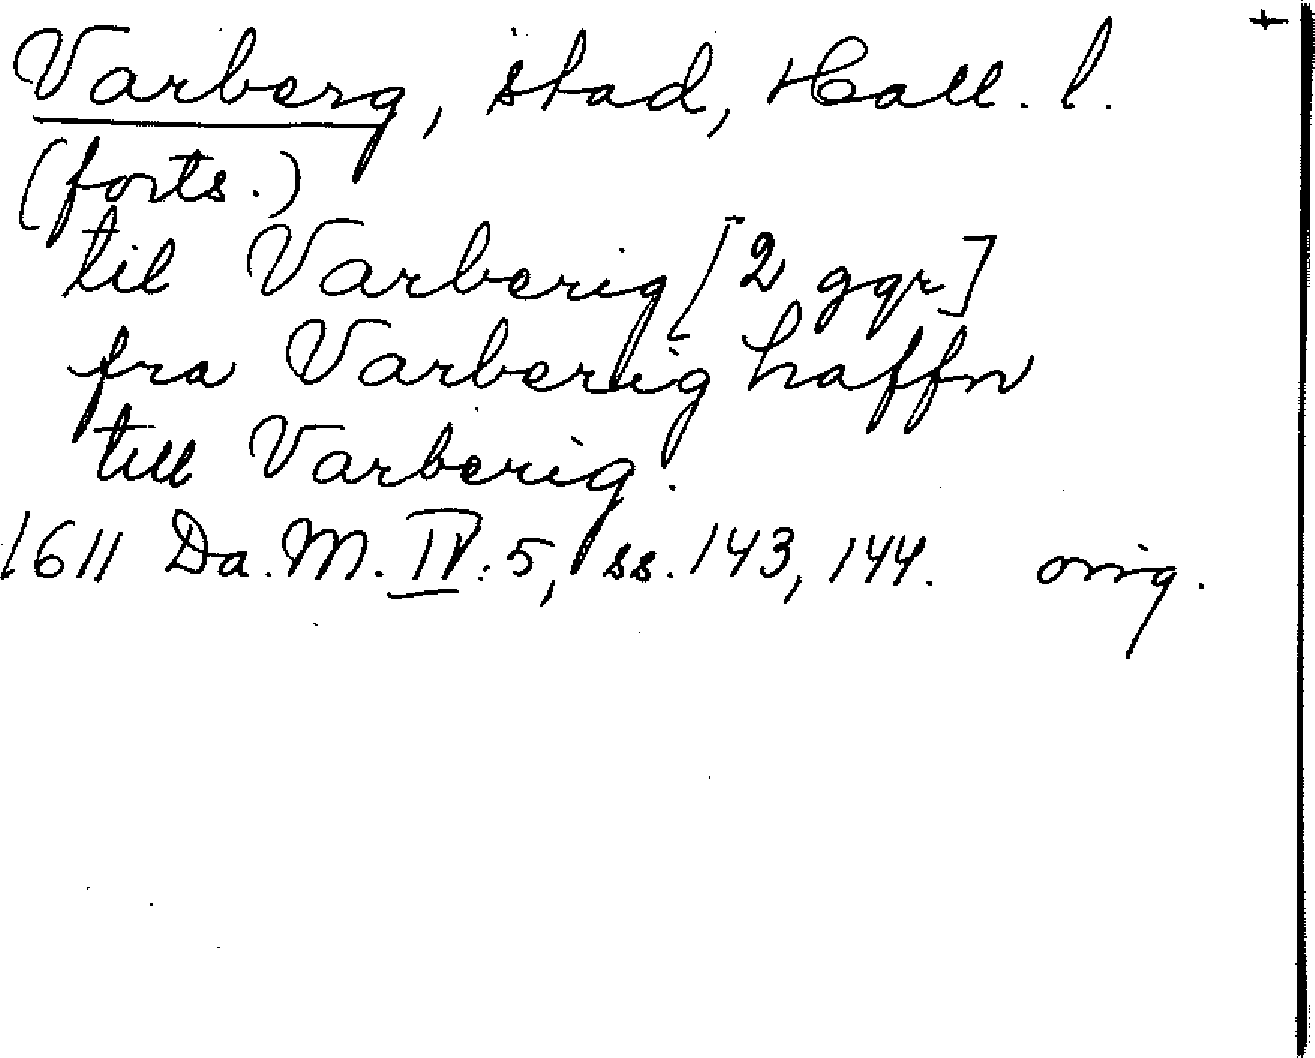 Varberg, stad, Hall. l. +
(forts.)
til Varberig [2 ggr]
fra Varberig haffn
till Varberig.
1611 Da. M. IV: 5, ss. 143, 144. orig.